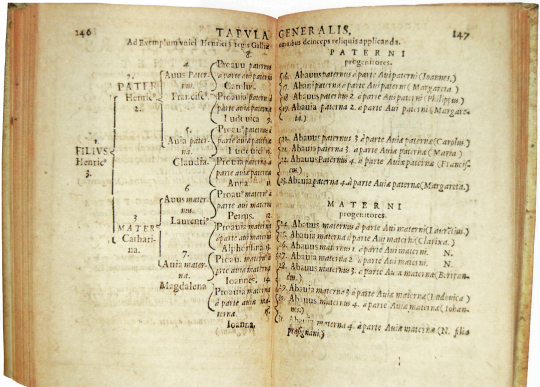 246
TABVLA
Ad Exemplum vnici Henrici 3 regis Galliæ
1.
FILIVS
Henricꝰ
3.
2.
PATER
Henricꝰ
2.
3
MATER
Cathari-
na.
4
Auus Pater-
nus.
Franciscꝰ
5.
Auia pater-
na.
Claudia.
6
Auus mater-
nus.
Laurentiꝰ
7.
Auia mater-
na.
Magdalena
Proauꝰ paternus
à parte aui paterni
Carolus.
Proauia paterna
à parte aui paterni
Ludouica 9.
Proauꝰ paternus
à parte auiæ paternæ
Proauia paterna
à parte auiæ paternæ
Anna
Proauꝰ maternꝰ
à parte aui materni
Petrus.
Proauia materna
à parte aui materni
Alphonsina
Proauꝰ maternꝰ
à parte auiæ maternæ
Ioannes. 14
Proauia materna
à parte auiæ mater-
næ.
Ioanna,
GENERALIS,
147
omnibus deinceps reliquis applicanda.
PATERNI
progenitores.
16. Abauus paternus à parte Aui paterni (Ioannes.)
17. Abauia paterna à parte Aui paterni (Margareta.)
18. Abauus paternus 2. à parte Aui paterni (Philippus.)
19. Abauia paterna 2. à parte Aui paterni (Margare-
ta.)
Abauus paternus 3 à parte Auiæ paternæ (Carolus.)
21. Abauia paterna 3. à parte Auiæ paternæ (Maria.)
22. Abauus Paternus 4. à parte Auiæ paternæ (Francis-
cus.)
23. Abauia paterna 4. à parte Auiæ paternæ (Margareta.)
MATERNI
progenitores.
24. Abauus maternus à parte Aui materni (Laurētius.)
Abauia materna à parte Aui materni (Clarixa.)
26. Abauus maternus à parte Aui materni. N.
Abauia materna 2. à parte Aui materni. N.
28. Abauus maternus 3. à parte Auiæ maternæ (Bertran-
Abauia materna 3 à parte Auiæ maternæ (Ludouica.)
Abauus maternus 4. à parte Auiæ maternæ (Iohan-
Abauia materna 4. à parte Auiæ maternæ (N. filia